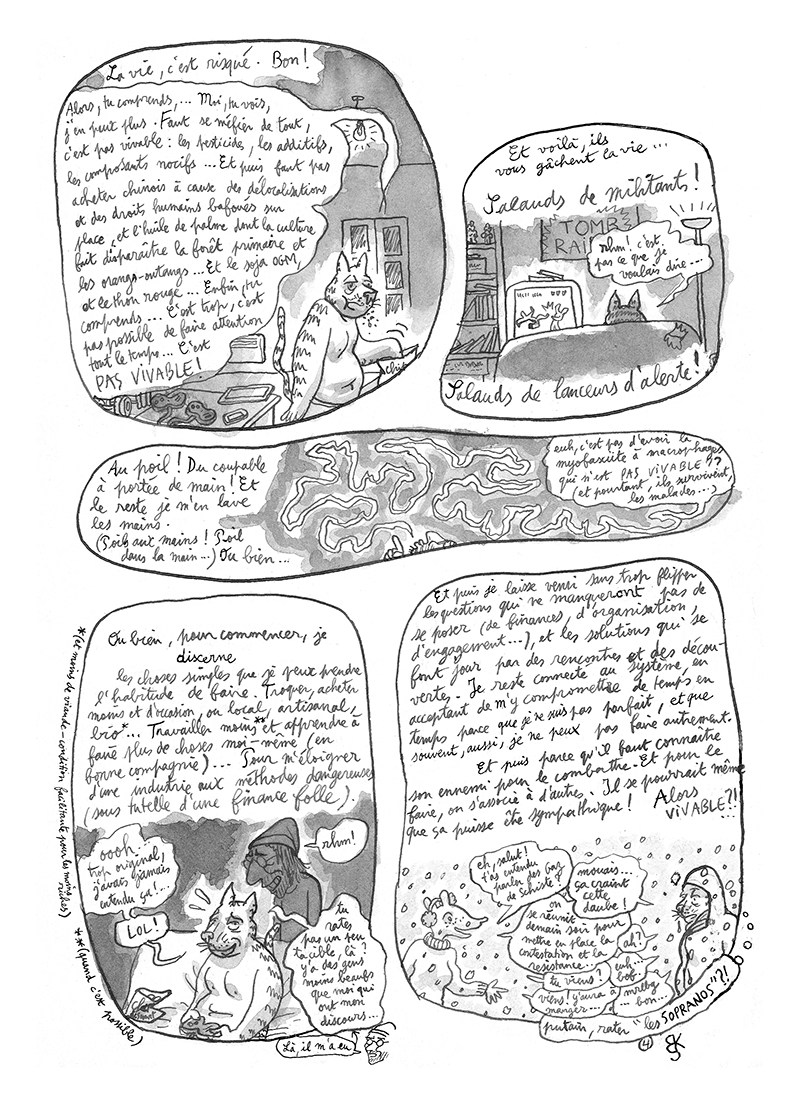 La vie, c'est risqué. Bon!
Alors, tu comprends,... Moi, tu vois,
j'en peux plus. Faut se méfier de tout,
c'est pas vivable: les pesticides, les additifs,
les composants nocifs... Et puis faut pas
acheter chinois à cause des délocalisations
et des droits humains bafoués sur
place, et l'huile de palme dont la culture
fait disparaître la forêt primaire et
les orangs-outangs... Et le soja OGM,
et le thon rouge... Enfin, tu
comprends... C'est trop, c'est
pas possible de faire attention
tout le temps... C'est
PAS VIVABLE!
Et voilà, ils
vous gâchent la vie...
Salauds de militants!
TOMB
RAI
rhm! c'est
pas ce que je
voulais dire...
Salauds de lanceurs d'alerte!
Au poil! Du coupable
à portée de main! Et
le reste je m'en lave
les mains.
(Poils aux mains! Poil
dans la main...) Ou bien...
euh, c'est pas d'avoir la
myofasciite à macrophages
qui n'est PAS VIVABLE??
(et pourtant, ils survivent,
les malades...)
Ou bien, pour commencer, je
discerne
les choses simples que je veux prendre
l'habitude de faire. Troquer, acheter
moins et d'occasion, ou local, artisanal,
bio*... Travailler moins** et apprendre à
faire plus de choses moi-même (en
bonne compagnie)... Pour m'éloigner
d'une industrie aux méthodes dangereuses
(sous tutelle d'une finance folle).
*(et moins de viande - condition facilitante pour les moins
riches)
**(quand c'est possible)
oooh
trop original,
j'avais jamais
entendu ça!...
LOL!
rhm!
tu
rates
pas un peu
ta cible, là?
y'a des gens
moins beaufs
que moi qui
ont mon
discours...
Là, il m'a eu
Et puis je laisse venir sans trop flipper
les questions qui ne manqueront pas de
se poser (de finances, d'organisation,
d'engagement...), et les solutions qui se
font jour par des rencontres et des décou-
vertes. Je reste connecté au système, en
acceptant de m'y compromettre de temps en
temps parce que je ne suis pas parfait, et que
souvent, aussi, je ne peux pas faire autrement.
Et puis parce qu'il faut connaître
son ennemi pour le combattre. Et pour le
faire, on s'associe à d'autres. Il se pourrait même
que ça puisse être sympathique! Alors
VIVABLE?!
eh, salut!
t'as entendu
parler des gaz
de schiste!
mouais...
ça craint
cette
daube!
on
se réunit
demain soir pour
mettre en place la
contestation et la
résistance...
ah?
tu viens?
euh...
bof
viens! y'aura à
manger...
mrlbg
bon...
putain, rater "les SOPRANOS"?!
4